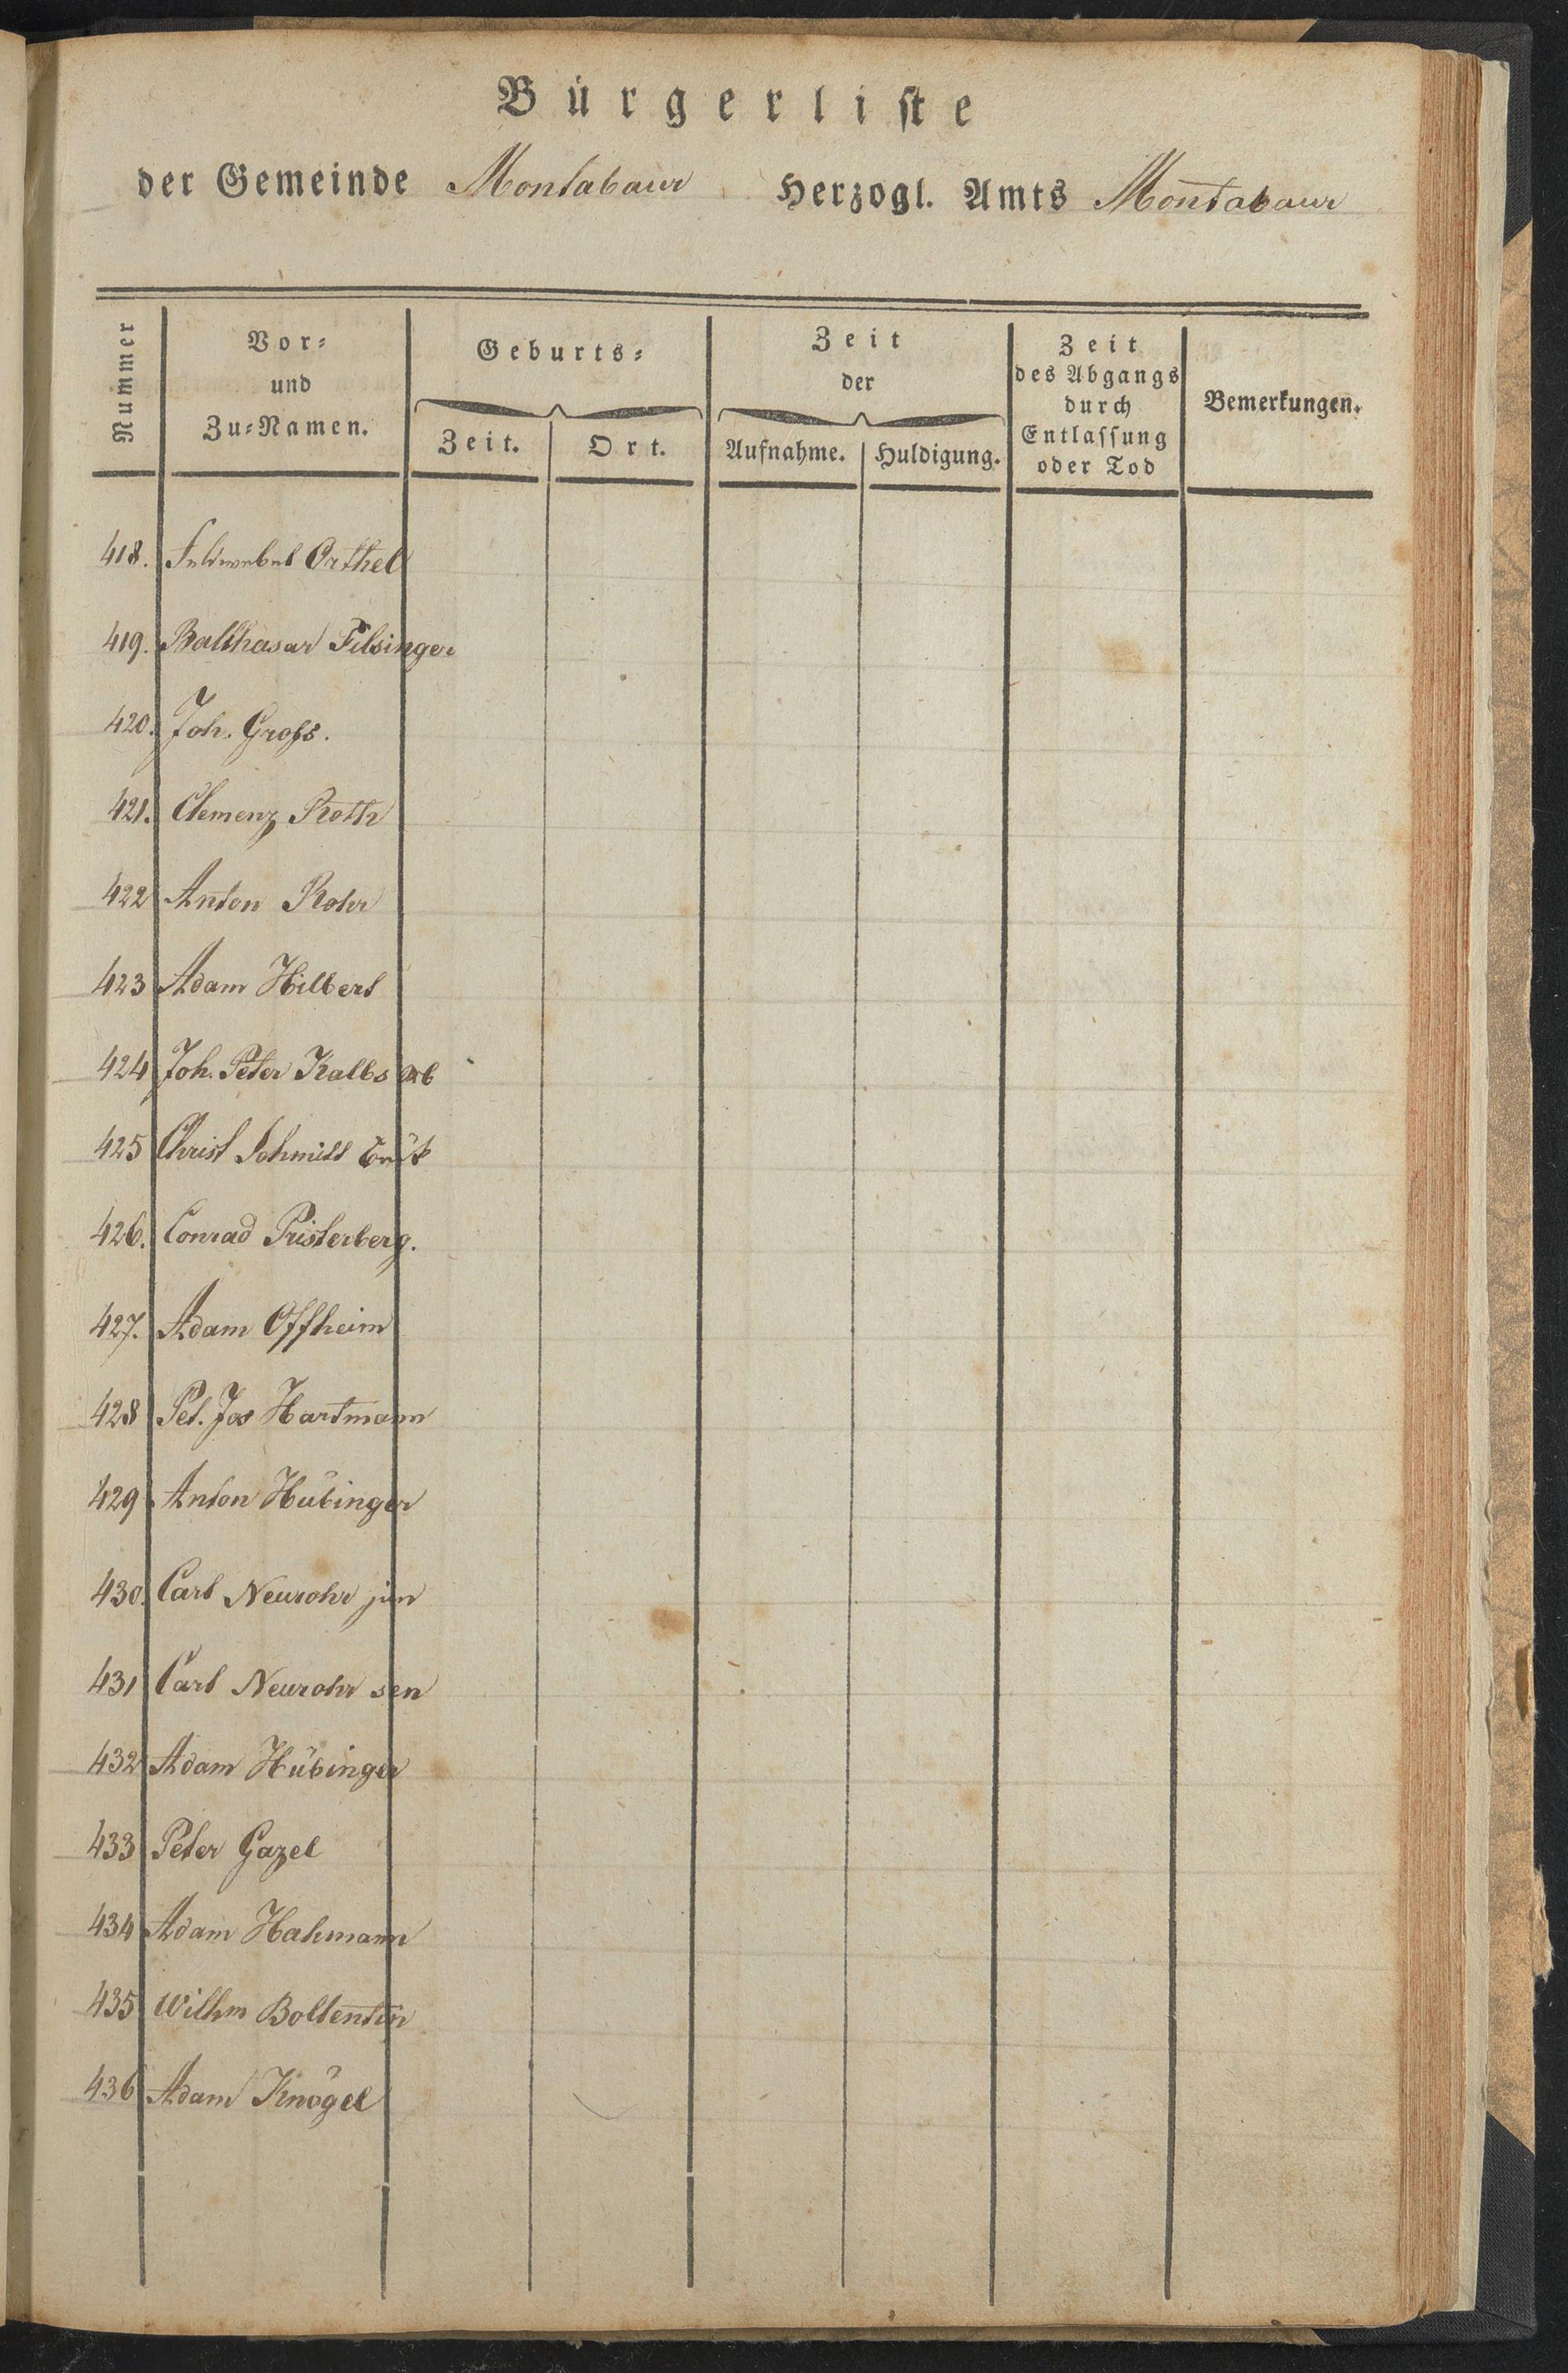 Bürgerliste
der Gemeinde Montabaur Herzogl. Amts Montabaur
Nummer
Vor-
und
Zu-Namen.
Geburts-
Zeit.
Ort.
Zeit
der
Aufnahme.
Huldigung.
Zeit
des Abgangs
durch
Entlassung
oder Tod
Bemerkungen.
418. Feldwebel Orthel
419. Balthasar Filsinger
420. Joh. Groß.
421. Clemenz Roth
422 Anton Rohr
423 Adam Hilbert
424 Joh. Peter Kalb
425 Christ Schmitt
426. Conrad Pristerberg.
427. Adam Offheim
428 Pet. Jos Hartmann
429 Anton Hübinger
430. Carl Neurohr jun
431 Carl Neurohr sen
432 Adam Hübinger
433 Peter Gazel
434 Adam Hahmann
435 Wilhm Boltentin
436 Adam Knögel